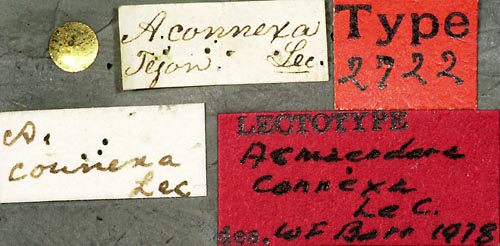 A. connexa
Tejon. Lec.
Type
2722
A.
connexa
Lec
LECTOTYPE
Acmaeodera
connexa
Le C.
des. WF Barr 1978